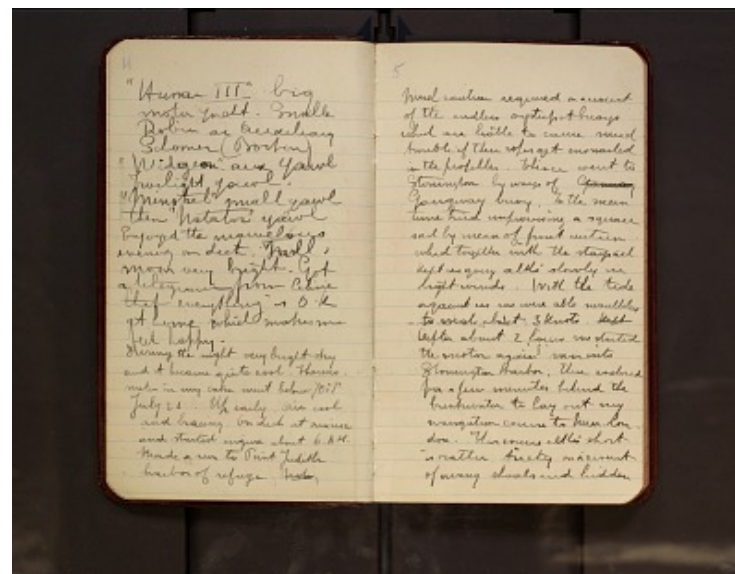 4
"Huron III" big
motor yacht. Smaller
Robin an auxiliary
Schooner (Boston)
"Widgeon" aux yawl
Twilight yawl.
"Minstrel" small yawl
then "Natator" yawl
Enjoyed the marvelous
evening on deck. Full
moon very bright. Got
a telegram from
that everything is O.K.
at home which makes me
feel happy.
During the night very bright sky
and it became quite cool. Thermo-
meter in my cabin went below
July 21. Up early, air cool
and bracing. On deck at sunrise
and started engine about 6 A.M.
Made a run to Point Judith
harbor of refuge.
5
Much caution required on account
of the endless buoys
which are liable to cause much
trouble if their ropes get
in the propeller. Thence went to
Stonington by ways of
Gangway buoy. In the mean
time tried improvising a square
sail by means of front curtain
which together with the staysail
kept us going altho slowly in
light winds. With the tide
against us we were able
to about 3 knots.
After about 2 hours we started
the motor again ran into
Stonington Harbor, there anchored
for a few minutes behind the
breakwater to lay out my
navigation course to New Lon-
don. This course altho short
is rather tricky on account
of many shoals and hidden